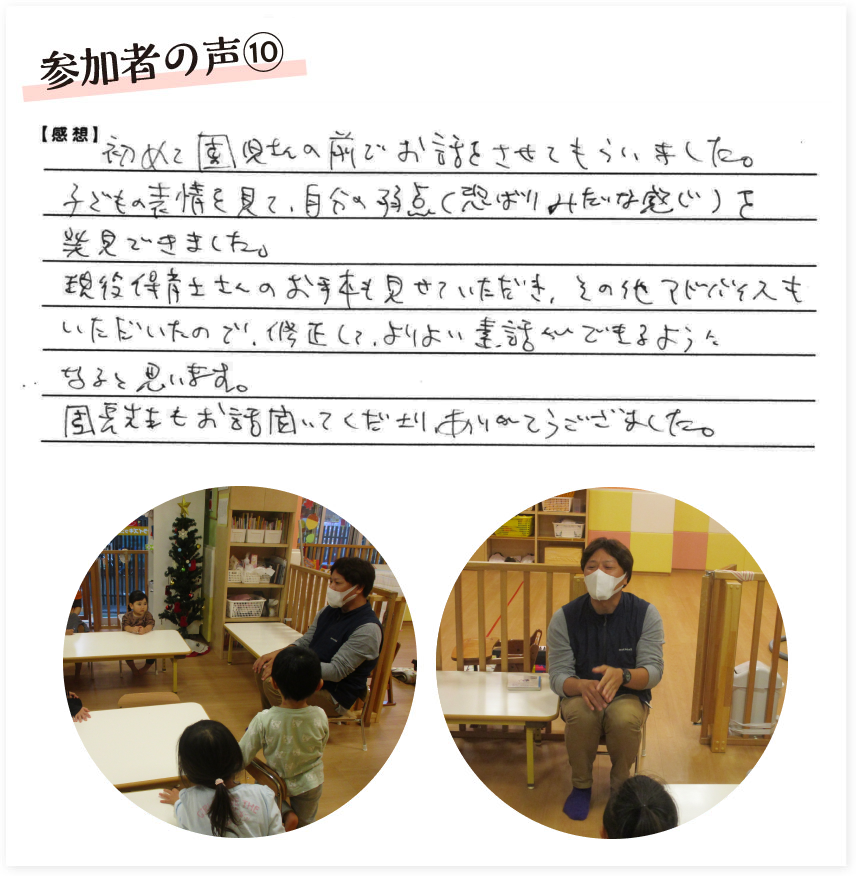 参加者の声⑩
【感想】
初めて園児さんの前でお話をさせてもらいました。
子どもの表情を見て、自分の弱点(ばりみたいな感じ)を
発見できました。
現役保育士さんのお手本も見せていただき、その他アドバイスも
いただいたので、修正して、よりよい素話ができるように
なると思います。
園長先生もお話聞いてくださり、ありがとうございました。